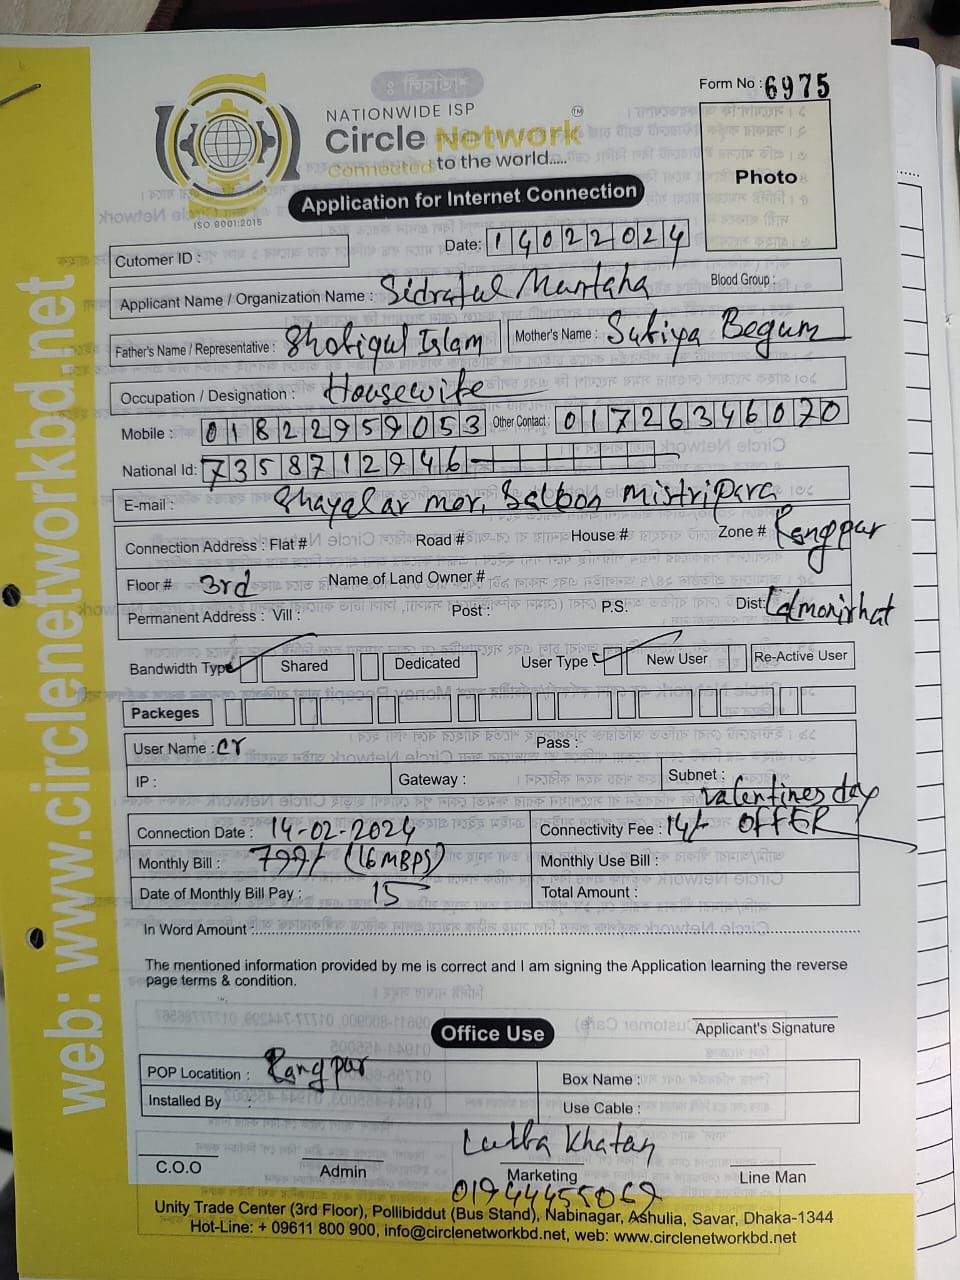 Form No : 6975
NATIONWIDE ISP
Circle Network TM
Connected to the world.....
ISO 9001:2015
Application for Internet Connection
Photo
Date: 14022024
Cutomer ID :
Applicant Name / Organization Name : Sidratul Muntaha Blood Group :
Father's Name / Representative : Shofiqul Islam Mother's Name : Sufiya Begum
Occupation / Designation : Housewife
Mobile : 01822959053 Other Contact : 01726346070
National Id: 7358712946
E-mail : Ghayalar mor, Balbon Mistripara
Connection Address : Flat # Road # House # Zone # Rangpur
Floor # 3rd Name of Land Owner #
Permanent Address : Vill : Post : P.S: Dist: Lalmonirhat
Bandwidth Type Shared Dedicated User Type New User Re-Active User
Packeges
User Name : cr Pass :
IP : Gateway : Subnet :
valentines day
Connection Date : 14-02-2024 Connectivity Fee : 14/- OFFER
Monthly Bill : 799/- (16 MBPS) Monthly Use Bill :
Date of Monthly Bill Pay : 15 Total Amount :
In Word Amount :
The mentioned information provided by me is correct and I am signing the Application learning the reverse
page terms & condition.
Applicant's Signature
Office Use
POP Locatition : Rangpur Box Name :
Installed By : Use Cable :
Lutba Khatan
C.O.O Admin Marketing Line Man
01944455069
Unity Trade Center (3rd Floor), Pollibiddut (Bus Stand), Nabinagar, Ashulia, Savar, Dhaka-1344
Hot-Line: + 09611 800 900, info@circlenetworkbd.net, web: www.circlenetworkbd.net
web: www.circlenetworkbd.net